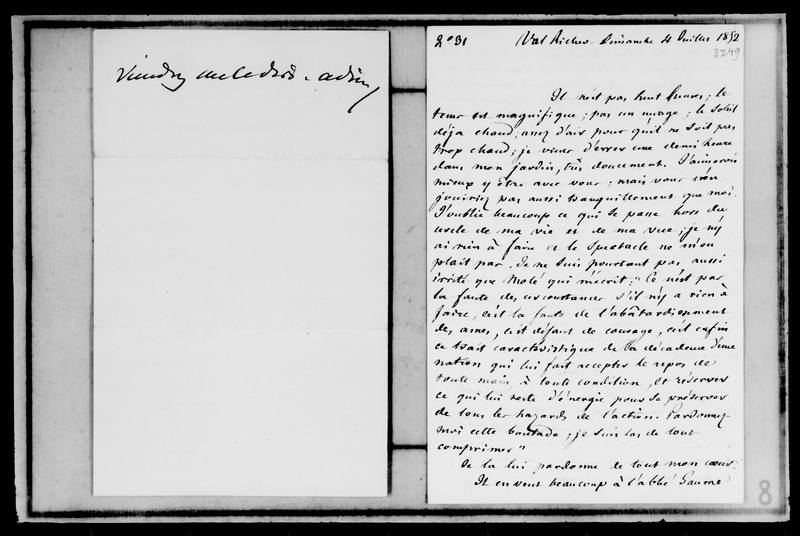 2° 31 Val Richer - Dimanche 4 Juillet 1852
8249
Il n'est pas huit heures ; le
tems est magnifique ; pas un nuage ; le soleil
déja chaud, assez d'air pour qu'il ne soit pas
trop chaud ; je viens d'errer une demi heure
dans mon jardin, très doucement. J'aimerois
mieux y être avec vous ; mais vous n'en
jouiriez pas aussi tranquillement que moi.
J'oublie beaucoup ce qui se passe hors du
cercle de ma vie et de ma vue ; je n'y
ai rien à faire et le spectacle ne m'en
plait pas. Je ne suis pourtant pas aussi
irrité que Molé qui m'écrit : " Ce n'est pas
la faute des circonstances s'il n'y a rien à
faire, c'est la faute de l'abâtardissement
des ames, c'est défaut de courage, c'est enfin
ce trait caractéristique de la décadence d'une
nation qui lui fait accepter le repos de
toute main, à toute condition, et réserver
ce qui lui reste d'énergie pour se préserver
de tous les hazards de l'action. Pardonnez
moi cette boutade ; je suis las de tout
comprimer "
Je la lui pardonne de tout mon cœur.
Il en veut beaucoup à l'abbé Gaume
8
adieu